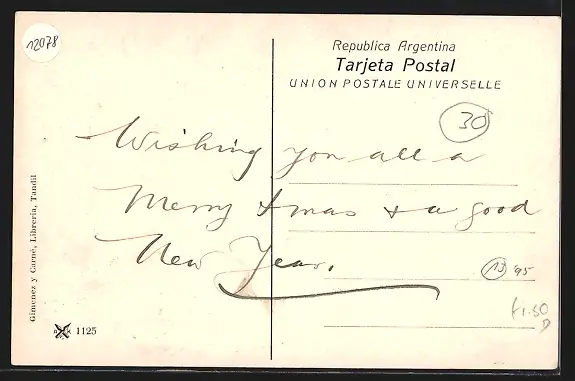 12078
Republica Argentina
Tarjeta Postal
UNION POSTALE UNIVERSELLE
30
Wishing you all a
Merry Xmas & a good
New Year.
13 95
Gimenez y Carné, Libreria, Tandil
1125